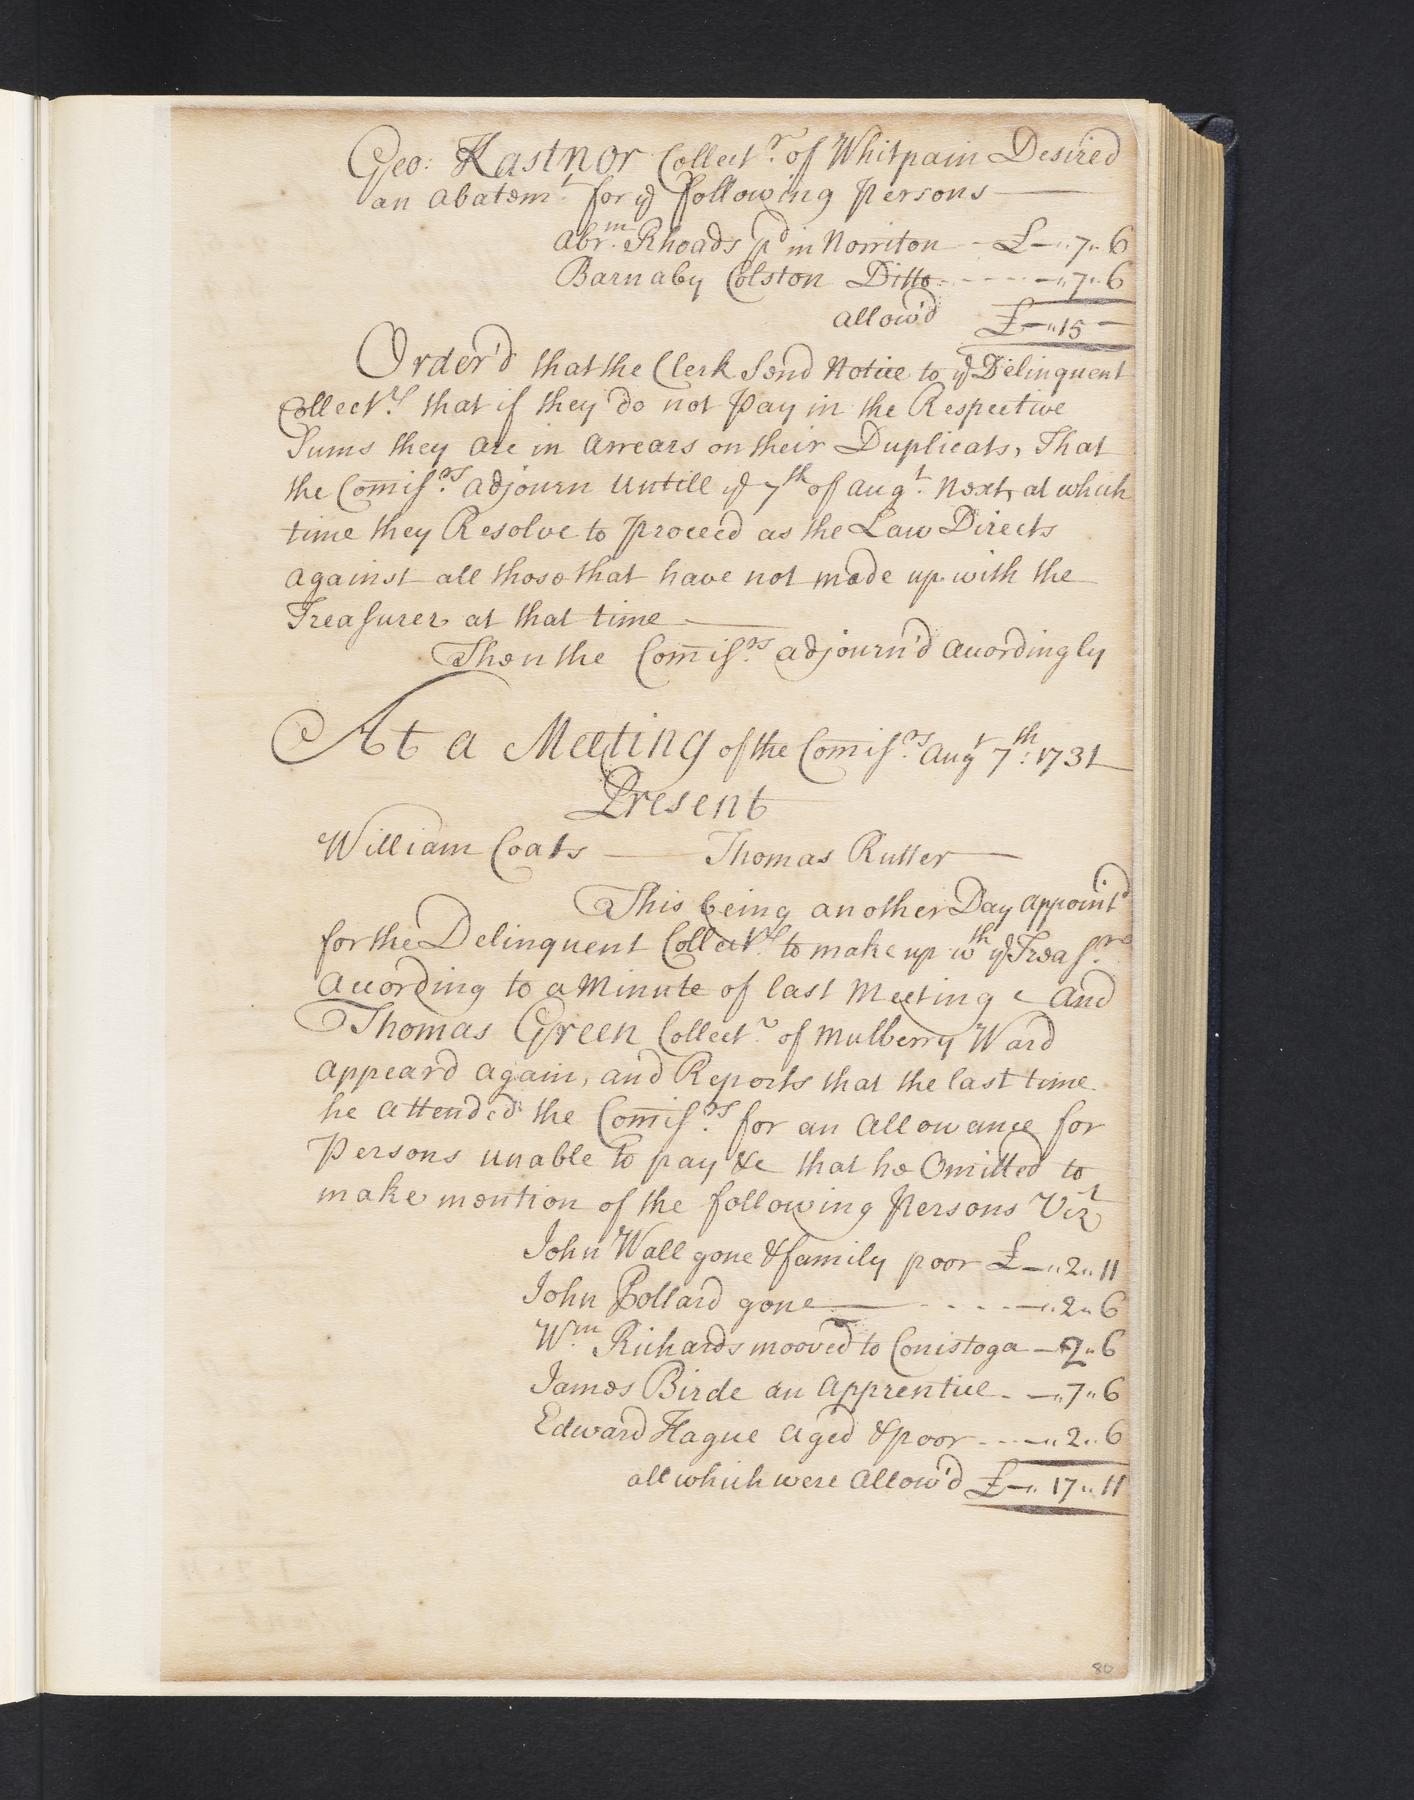 Geo: Kastnor Collectr. of Whitpain Desired
an abatemt. for ye following Persons
Abrm. Rhoads pd in Norriton - £-"7"6
Barnaby Colston Ditto - - - - -"7"6
allow'd £-"15-
Order'd that the Clerk Send Notice to ye Delinquent
Collectrs. that if they do not Pay in the Respective
Sums they are in arrears on their Duplicats, That
the Comissrs. adjourn Untill ye 7th of augt. Next, at which
time they Resolve to Proceed as the Law Directs
against all those that have not made up with the
Treasurer at that time
Then the Comissrs. adjourn'd acordingly
At a Meeting of the Comissrs. augt 7th: 1731
Present
William Coats — Thomas Rutter
This being another Day appointd
for the Delinquent Collectrs. to make up wth ye Treasrer.
acording to a Minute of last Meeting and
Thomas Green Collectr. of Mulberry Ward
appeard again, and Reports that the last time
he attended the Comissrs. for an allowance for
Persons unable to pay &c that he Omitted to
make mention of the following Persons Vizt
John Wall gone & family poor £-"2"11
John Pollard gone - - - -"2"6
Wm. Richards mooved to Conistoga -2"6
James Birde an apprentice - -"7"6
Edward Hague aged & poor - - -"2"6
all which were allow'd £-"17"11
80